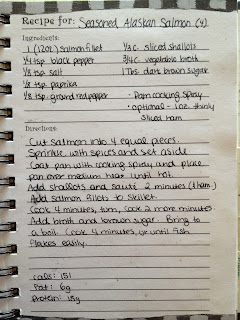 Recipe for: Seasoned Alaskan Salmon (4)
Ingredients:
1 (12oz) salmon fillet 1/3 c. sliced shallots
1/4 tsp black pepper 3/4 c. vegetable broth
1/8 tsp salt 1 Tbs. dark brown sugar
1/8 tsp paprika
1/8 tsp. ground red pepper · Pam cooking spray
· optional - 1oz. thinly
sliced ham
Directions:
Cut salmon into 4 equal pieces.
Sprinkle with spices and set aside
Coat pan with cooking spray and place
pan over medium heat until hot.
Add shallots and sauté 2 minutes (& ham)
Add salmon fillets to skillet.
Cook 4 minutes, turn, cook 2 more minutes.
Add broth and brown sugar. Bring to
a boil. Cook 4 minutes, or until fish
flakes easily.
cals: 151
Fat: 6g
Protein: 18g